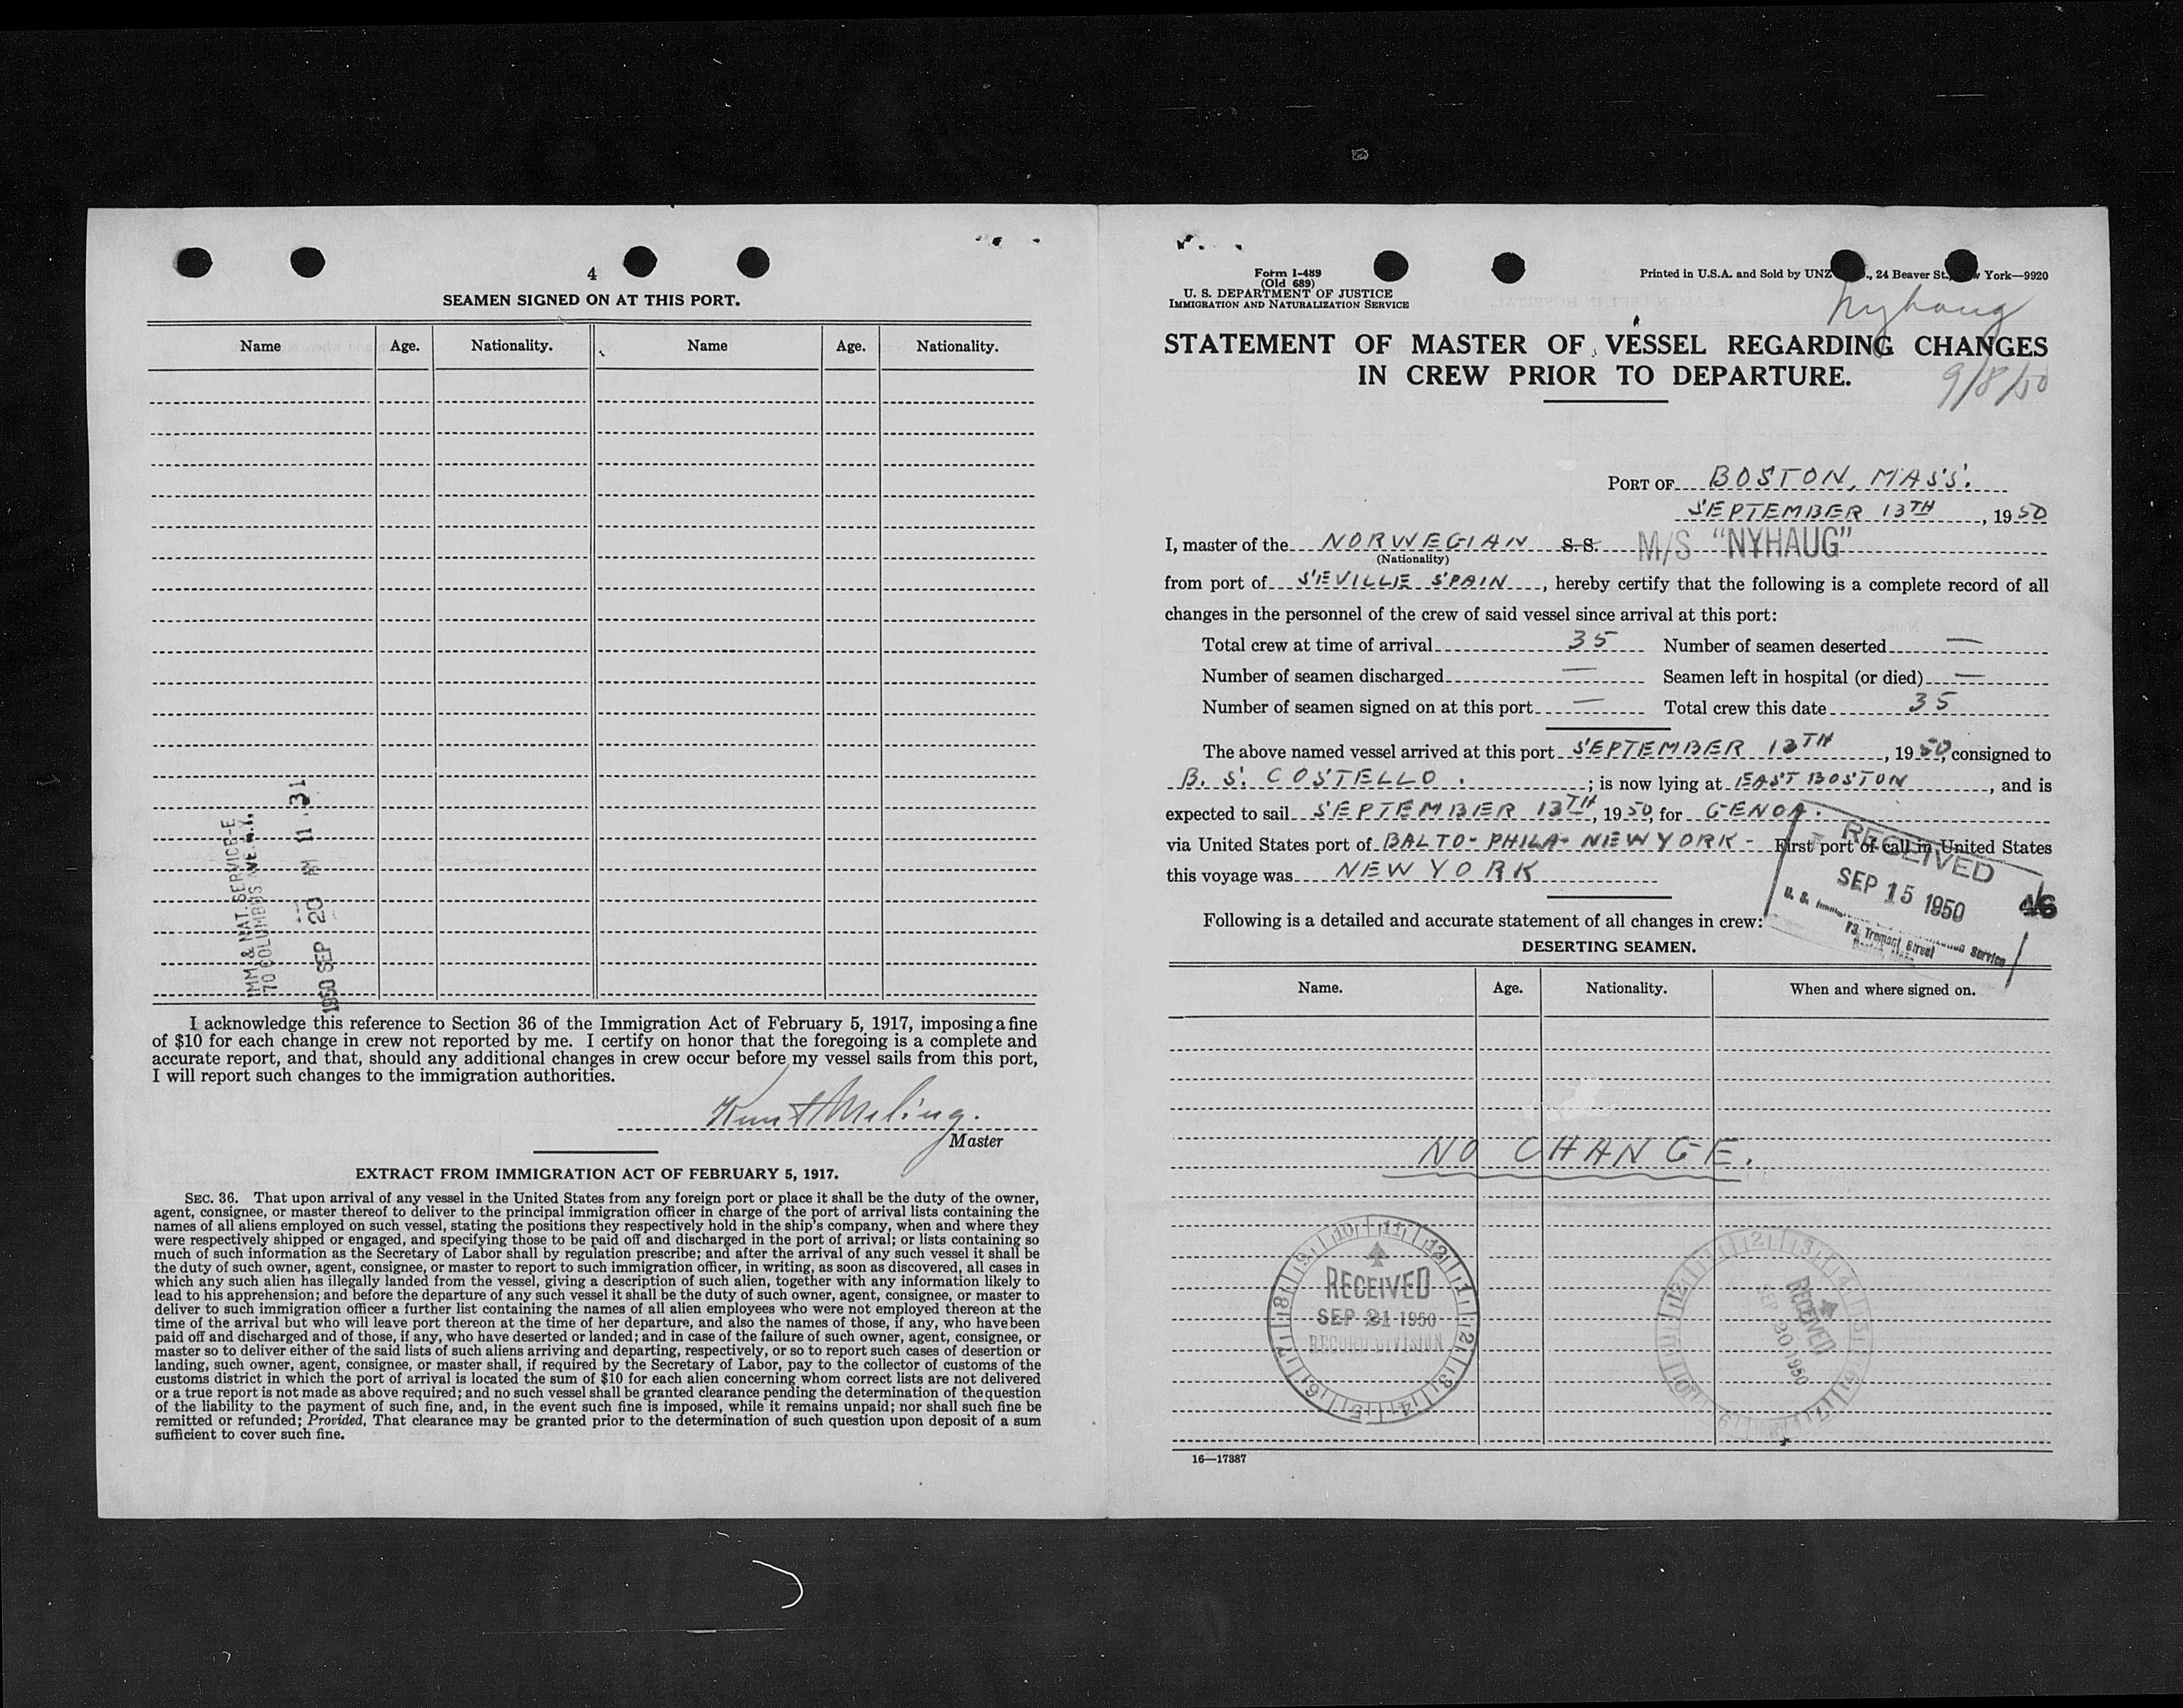 4
SEAMEN SIGNED ON AT THIS PORT.
Name Age. Nationality. Name Age. Nationality.
IMM & NAT. SERVICE-E
70 COLUMBUS AVE.
1950 SEP 20 M 11 31
I acknowledge this reference to Section 36 of the Immigration Act of February 5, 1917, imposing a fine
of $10 for each change in crew not reported by me. I certify on honor that the foregoing is a complete and
accurate report, and that, should any additional changes in crew occur before my vessel sails from this port,
I will report such changes to the immigration authorities.
Knut Meling.
Master
EXTRACT FROM IMMIGRATION ACT OF FEBRUARY 5, 1917.
SEC. 36. That upon arrival of any vessel in the United States from any foreign port or place it shall be the duty of the owner,
agent, consignee, or master thereof to deliver to the principal immigration officer in charge of the port of arrival lists containing the
names of all aliens employed on such vessel, stating the positions they respectively hold in the ship's company, when and where they
were respectively shipped or engaged, and specifying those to be paid off and discharged in the port of arrival; or lists containing so
much of such information as the Secretary of Labor shall by regulation prescribe; and after the arrival of any such vessel it shall be
the duty of such owner, agent, consignee, or master to report to such immigration officer, in writing, as soon as discovered, all cases in
which any such alien has illegally landed from the vessel, giving a description of such alien, together with any information likely to
lead to his apprehension; and before the departure of any such vessel it shall be the duty of such owner, agent, consignee, or master to
deliver to such immigration officer a further list containing the names of all alien employees who were not employed thereon at the
time of the arrival but who will leave port thereon at the time of her departure, and also the names of those, if any, who have been
paid off and discharged and of those, if any, who have deserted or landed; and in case of the failure of such owner, agent, consignee, or
master so to deliver either of the said lists of such aliens arriving and departing, respectively, or so to report such cases of desertion or
landing, such owner, agent, consignee, or master shall, if required by the Secretary of Labor, pay to the collector of customs of the
customs district in which the port of arrival is located the sum of $10 for each alien concerning whom correct lists are not delivered
or a true report is not made as above required; and no such vessel shall be granted clearance pending the determination of the question
of the liability to the payment of such fine, and, in the event such fine is imposed, while it remains unpaid; nor shall such fine be
remitted or refunded; Provided, That clearance may be granted prior to the determination of such question upon deposit of a sum
sufficient to cover such fine.
Form I-489
(Old 689)
U. S. DEPARTMENT OF JUSTICE
IMMIGRATION AND NATURALIZATION SERVICE
Printed in U.S.A. and Sold by UNZ ., 24 Beaver St., York—9920
Nyhaug
STATEMENT OF MASTER OF VESSEL REGARDING CHANGES
IN CREW PRIOR TO DEPARTURE.
9/8/50
PORT OF BOSTON, MASS.
SEPTEMBER 13TH, 1950
I, master of the NORWEGIAN S. S. M/S "NYHAUG"
(Nationality)
from port of SEVILLE SPAIN, hereby certify that the following is a complete record of all
changes in the personnel of the crew of said vessel since arrival at this port:
Total crew at time of arrival 35 Number of seamen deserted —
Number of seamen discharged — Seamen left in hospital (or died) —
Number of seamen signed on at this port — Total crew this date 35
The above named vessel arrived at this port SEPTEMBER 13TH, 1950, consigned to
B. S. COSTELLO. ; is now lying at EAST BOSTON, and is
expected to sail SEPTEMBER 13TH, 1950, for GENOA.
via United States port of BALTO- PHILA- NEW YORK - First port of call in United States
this voyage was NEW YORK
RECEIVED
SEP 15 1950
U. S. Service
73 Tremont Street
46
Following is a detailed and accurate statement of all changes in crew:
DESERTING SEAMEN.
Name. Age. Nationality. When and where signed on.
NO CHANGE.
10 11 12 1 2 3 4 5 6 7 8 9
RECEIVED
SEP 21 1950
RECORD DIVISION
RECEIVED
SEP 20 1950
16—17387